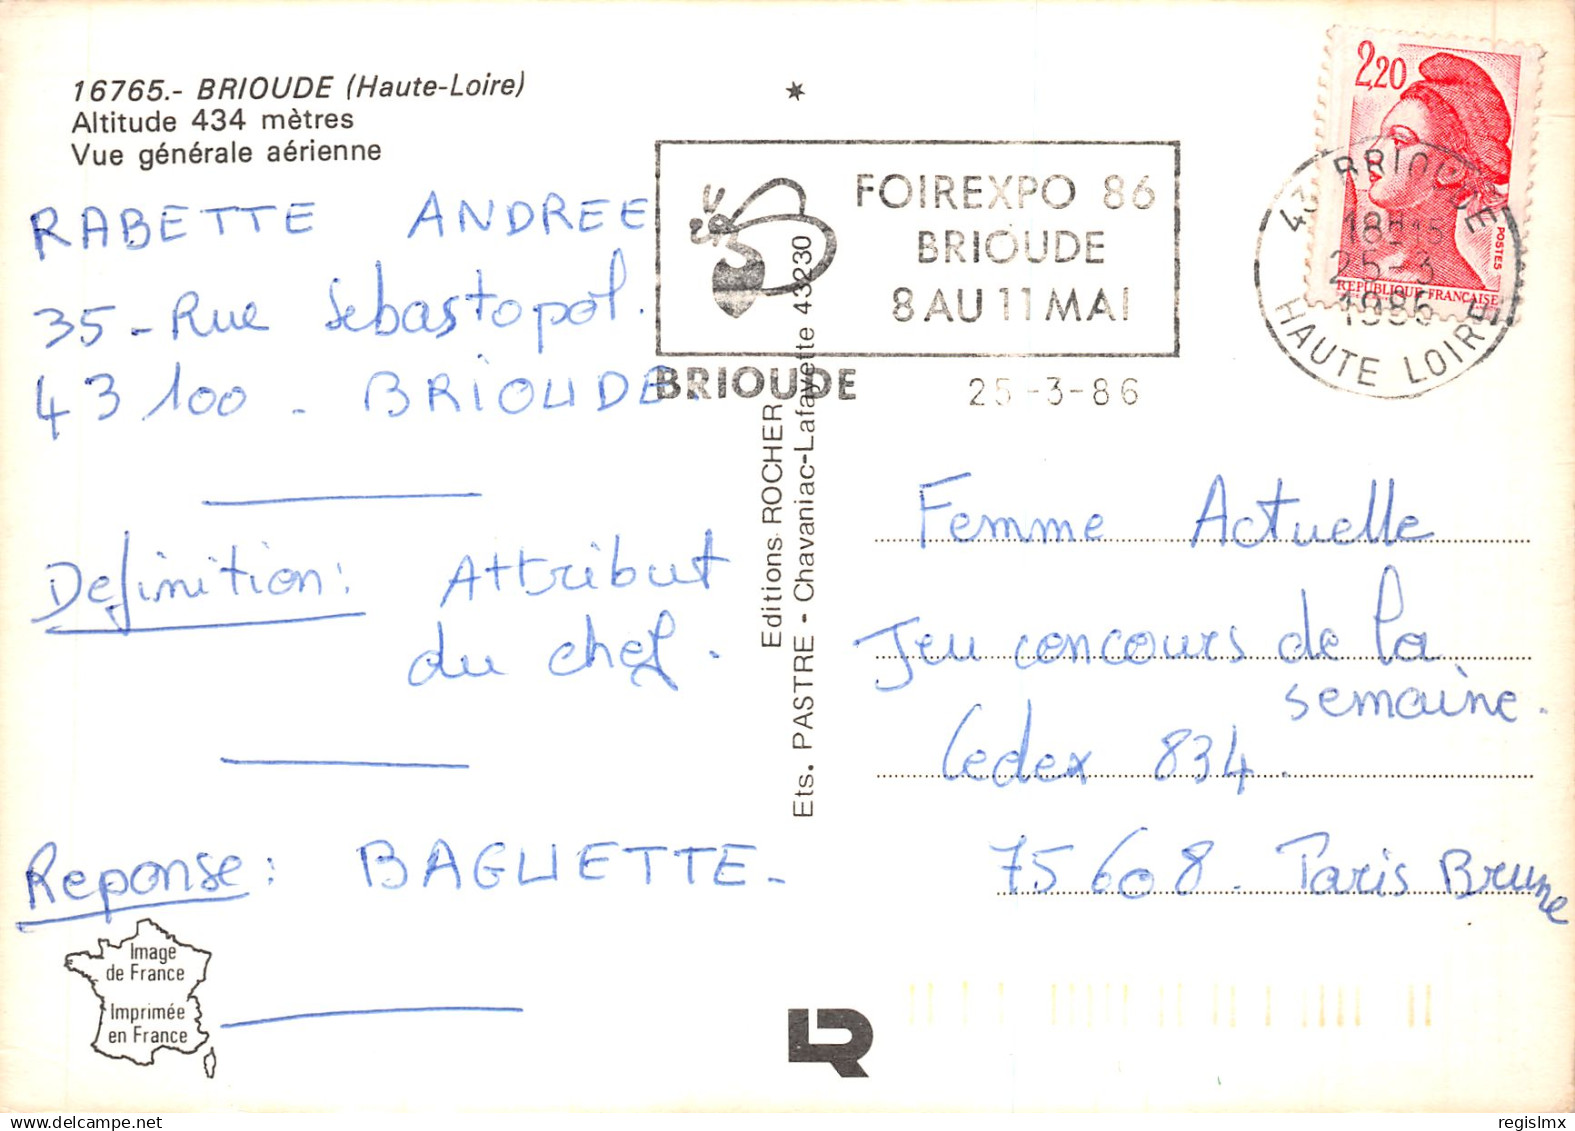 16765.- BRIOUDE (Haute-Loire)
Altitude 434 mètres
Vue générale aérienne
RABETTE ANDREE
35 - Rue Sebastopol.
43 100 - BRIOUDE.
Definition: Attribut
du chef.
Reponse: BAGUETTE-
Image
de France
Imprimée
en France
Editions ROCHER
Ets. PASTRE - Chavaniac-Lafayette 43230
FOIREXPO 86
BRIOUDE
8 AU 11 MAI
BRIOUDE
25-3-86
2,20
POSTES
REPUBLIQUE FRANÇAISE
43 BRIOUDE
25-3
HAUTE LOIRE
Femme Actuelle
Jeu concours de la
semaine.
Cedex 834.
75608. Paris Brune
LR
delcampe.net
regislmx